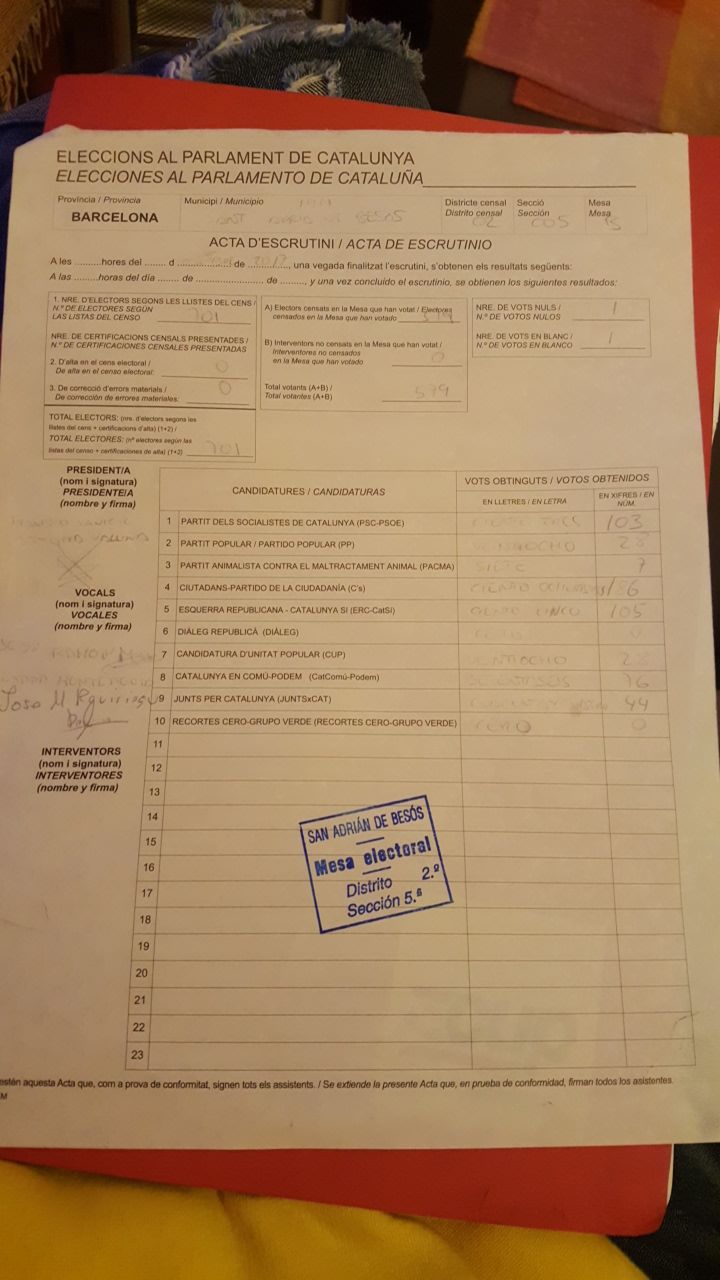 ELECCIONS AL PARLAMENT DE CATALUNYA
ELECCIONES AL PARLAMENTO DE CATALUÑA
Província / Provincia
BARCELONA
Municipi / Municipio
Districte censal
Distrito censal
02
Secció
Sección
005
Mesa
Mesa
ACTA D'ESCRUTINI / ACTA DE ESCRUTINIO
A les .........hores del ...... d ..................de ............., una vegada finalitzat l'escrutini, s'obtenen els resultats següents:
A las .........horas del día ...... de ....................... de ........, y una vez concluido el escrutinio, se obtienen los siguientes resultados:
1. NRE. D'ELECTORS SEGONS LES LLISTES DEL CENS /
N.º DE ELECTORES SEGÚN
LAS LISTAS DEL CENSO 701
NRE. DE CERTIFICACIONS CENSALS PRESENTADES /
N.º DE CERTIFICACIONES CENSALES PRESENTADAS
2. D'alta en el cens electoral /
De alta en el censo electoral: 0
3. De correcció d'errors materials /
De corrección de errores materiales: 0
TOTAL ELECTORS: (nre. d'electors segons les
llistes del cens + certificacions d'alta) (1+2) /
TOTAL ELECTORES: (nº electores según las
listas del censo + certificaciones de alta) (1+2) 701
A) Electors censats en la Mesa que han votat / Electores
censados en la Mesa que han votado 579
B) Interventors no censats en la Mesa que han votat /
Interventores no censados
en la Mesa que han votado 0
Total votants (A+B) /
Total votantes (A+B) 579
NRE. DE VOTS NULS /
N.º DE VOTOS NULOS 1
NRE. DE VOTS EN BLANC /
N.º DE VOTOS EN BLANCO 1
PRESIDENT/A
(nom i signatura)
PRESIDENTE/A
(nombre y firma)
VOCALS
(nom i signatura)
VOCALES
(nombre y firma)
Jose M
INTERVENTORS
(nom i signatura)
INTERVENTORES
(nombre y firma)
CANDIDATURES / CANDIDATURAS
VOTS OBTINGUTS / VOTOS OBTENIDOS
EN LLETRES / EN LETRA
EN XIFRES / EN NÚM.
1 PARTIT DELS SOCIALISTES DE CATALUNYA (PSC-PSOE) CIENTO TRES 103
2 PARTIT POPULAR / PARTIDO POPULAR (PP) VEINTIOCHO 28
3 PARTIT ANIMALISTA CONTRA EL MALTRACTAMENT ANIMAL (PACMA) SIETE 7
4 CIUTADANS-PARTIDO DE LA CIUDADANÍA (C's) CIENTO 186
5 ESQUERRA REPUBLICANA - CATALUNYA SÍ (ERC-CatSí) CIENTO CINCO 105
6 DIÀLEG REPUBLICÀ (DIÀLEG) CERO 0
7 CANDIDATURA D'UNITAT POPULAR (CUP) VEINTIOCHO 28
8 CATALUNYA EN COMÚ-PODEM (CatComú-Podem) 76
9 JUNTS PER CATALUNYA (JUNTSxCAT) 44
10 RECORTES CERO-GRUPO VERDE (RECORTES CERO-GRUPO VERDE) CERO 0
11
12
13
14
15
16
17
18
19
20
21
22
23
SAN ADRIÁN DE BESÓS
Mesa electoral
Distrito 2.º
Sección 5.ª
estén aquesta Acta que, com a prova de conformitat, signen tots els assistents. / Se extiende la presente Acta que, en prueba de conformidad, firman todos los asistentes.